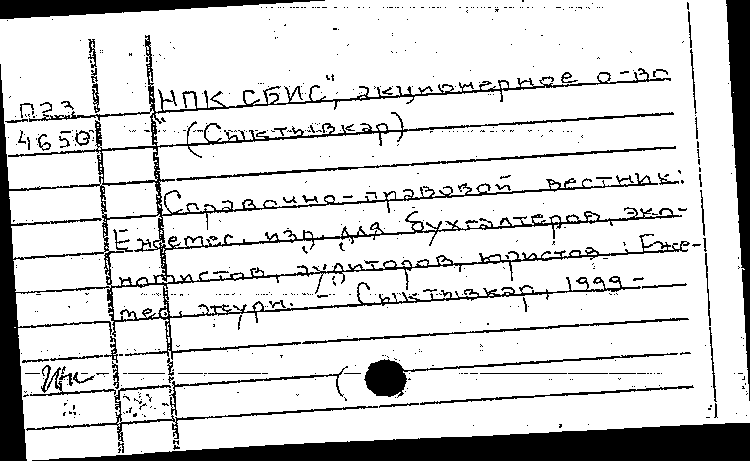 П23
4650
"НПК СБИС", акционерное о-во
(Сыктывкар)
Справочно-правовой вестник:
Ежемес. изд. для бухгалтеров, эко-
номистов, аудиторов, юристов : Еже-
мес. журн. - Сыктывкар, 1999-